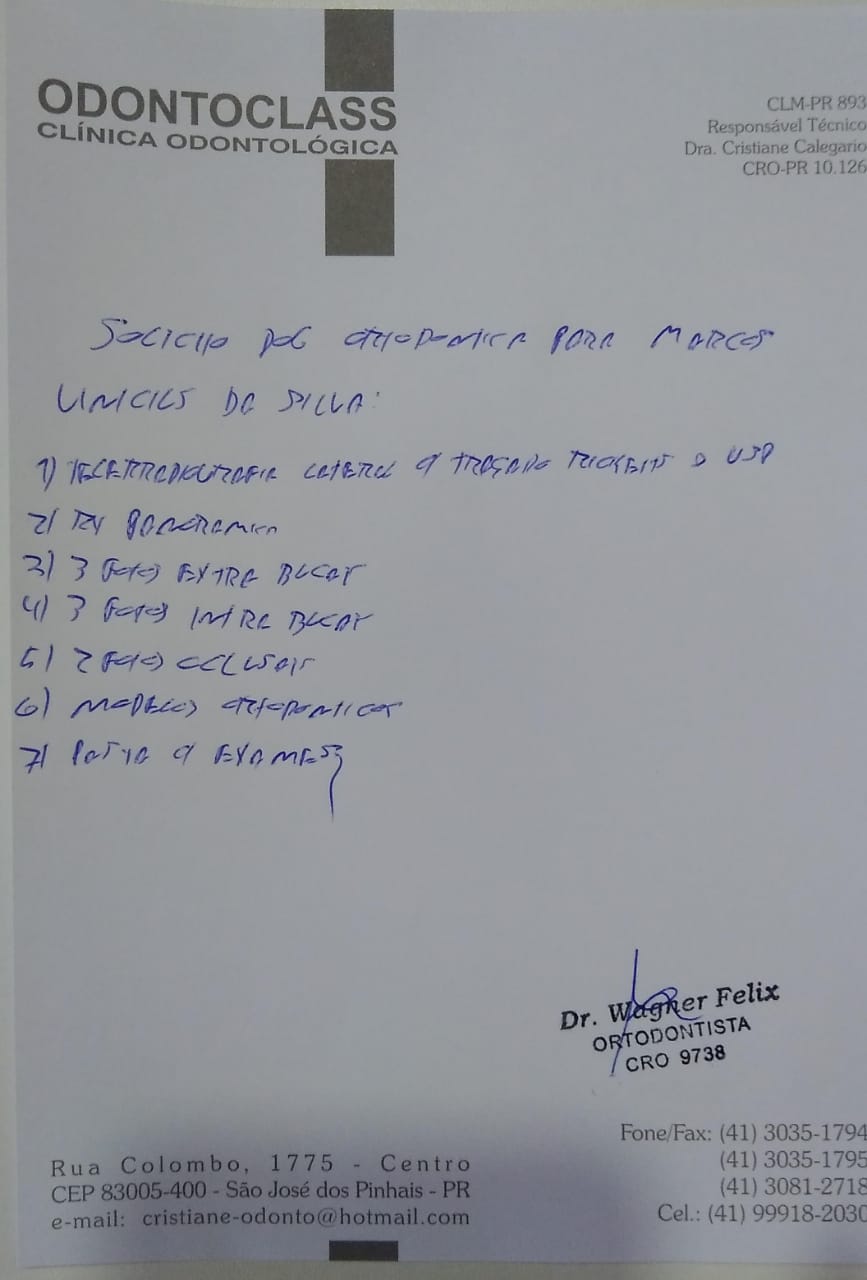 ODONTOCLASS
CLÍNICA ODONTOLÓGICA
CLM-PR 893
Responsável Técnico
Dra. Cristiane Calegario
CRO-PR 10.126
SOLICITO DOC ORTODONTICA PARA MARCOS
VINICIUS DA SILVA:
1) TELERRADIOGRAFIA LATERAL C/ TRAÇADO RICKETTS E USP
2) RX PANORAMICA
3) 3 FOTOS EXTRA BUCAIS
4) 3 FOTOS INTRA BUCAIS
5) 2 FOTOS OCLUSAIS
6) MODELOS ORTODONTICOS
7) PASTA C/ EXAMES
Dr. Wagner Felix
ORTODONTISTA
CRO 9738
Rua Colombo, 1775 - Centro
CEP 83005-400 - São José dos Pinhais - PR
e-mail: cristiane-odonto@hotmail.com
Fone/Fax: (41) 3035-1794
(41) 3035-1795
(41) 3081-2718
Cel.: (41) 99918-2030